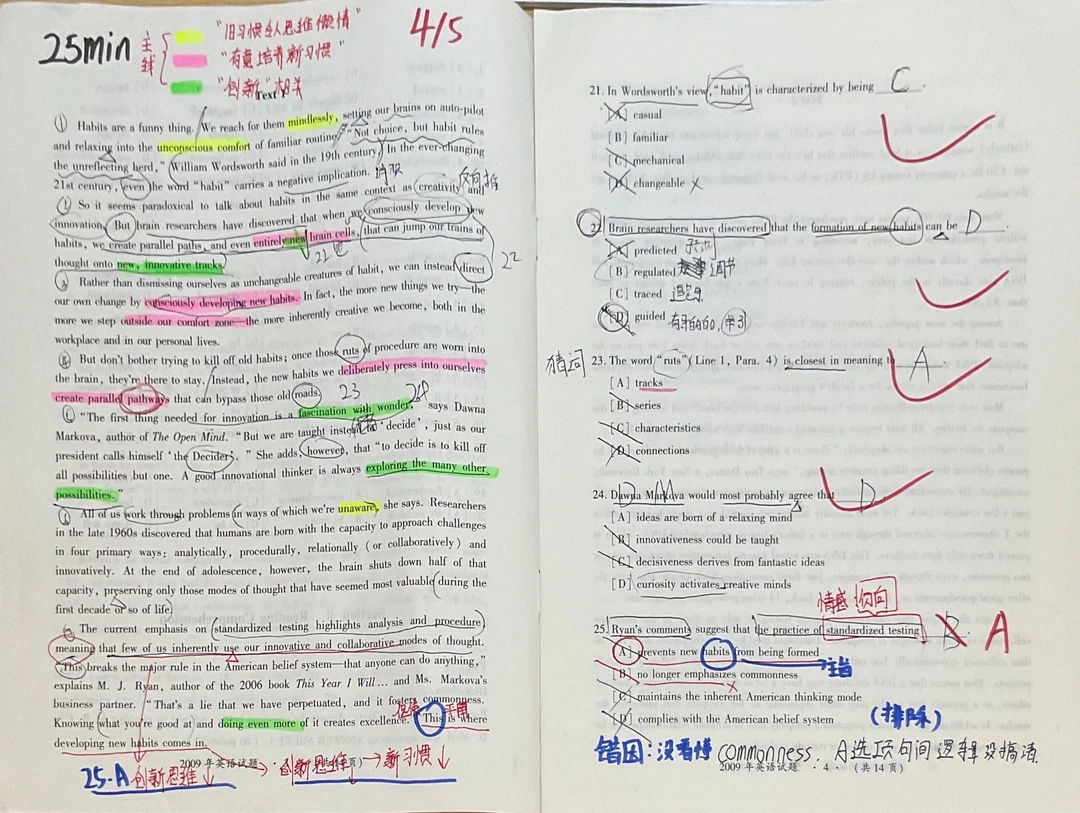 25min
主线
"旧习惯 纵思维懒惰"
"有意培养新习惯"
"创新"相关
4/5
Text 1
① Habits are a funny thing. We reach for them mindlessly, setting our brains on auto-pilot
and relaxing into the unconscious comfort of familiar routine. "Not choice, but habit rules
the unreflecting herd," William Wordsworth said in the 19th century. In the ever-changing
21st century, even the word "habit" carries a negative implication.
消极
反向推
So it seems paradoxical to talk about habits in the same context as creativity and
innovation. But brain researchers have discovered that when we consciously develop new
habits, we create parallel paths, and even entirely new brain cells, that can jump our trains of
thought onto new, innovative tracks.
22
22
Rather than dismissing ourselves as unchangeable creatures of habit, we can instead direct
our own change by consciously developing new habits. In fact, the more new things we try—the
more we step outside our comfort zone—the more inherently creative we become, both in the
workplace and in our personal lives.
But don't bother trying to kill off old habits; once those ruts of procedure are worn into
the brain, they're there to stay. Instead, the new habits we deliberately press into ourselves
create parallel pathways that can bypass those old roads.
23
24
"The first thing needed for innovation is a fascination with wonder," says Dawna
Markova, author of The Open Mind. "But we are taught instead to 'decide', just as our
president calls himself 'the Decider'." She adds, however, that "to decide is to kill off
all possibilities but one. A good innovational thinker is always exploring the many other
possibilities."
All of us work through problems in ways of which we're unaware, she says. Researchers
in the late 1960s discovered that humans are born with the capacity to approach challenges
in four primary ways: analytically, procedurally, relationally (or collaboratively) and
innovatively. At the end of adolescence, however, the brain shuts down half of that
capacity, preserving only those modes of thought that have seemed most valuable during the
first decade or so of life.
The current emphasis on standardized testing highlights analysis and procedure,
meaning that few of us inherently use our innovative and collaborative modes of thought.
"This breaks the major rule in the American belief system—that anyone can do anything,"
explains M. J. Ryan, author of the 2006 book This Year I Will... and Ms. Markova's
business partner. "That's a lie that we have perpetuated, and it fosters commonness.
Knowing what you're good at and doing even more of it creates excellence." This is where
developing new habits comes in.
25-A 创新思维↓ → 创新思维↓ → 新习惯↓
2009 年英语试题
21. In Wordsworth's view, "habit" is characterized by being C.
[A] casual
[B] familiar
[C] mechanical
[D] changeable ×
22. Brain researchers have discovered that the formation of new habits can be D.
[A] predicted 预测
[B] regulated 调节
[C] traced 追踪
[D] guided
猜词
23. The word "ruts" (Line 1, Para. 4) is closest in meaning to A.
[A] tracks
[B] series
[C] characteristics
[D] connections
24. Dawna Markova would most probably agree that D
[A] ideas are born of a relaxing mind
[B] innovativeness could be taught
[C] decisiveness derives from fantastic ideas
[D] curiosity activates creative minds
情感倾向
25. Ryan's comments suggest that the practice of standardized testing B A
[A] prevents new habits from being formed
主旨
[B] no longer emphasizes commonness
[C] maintains the inherent American thinking mode
[D] complies with the American belief system
(排除)
错因：没看懂 commonness. A选项句间逻辑没搞清.
2009 年英语试题 · 4 · (共 14 页)